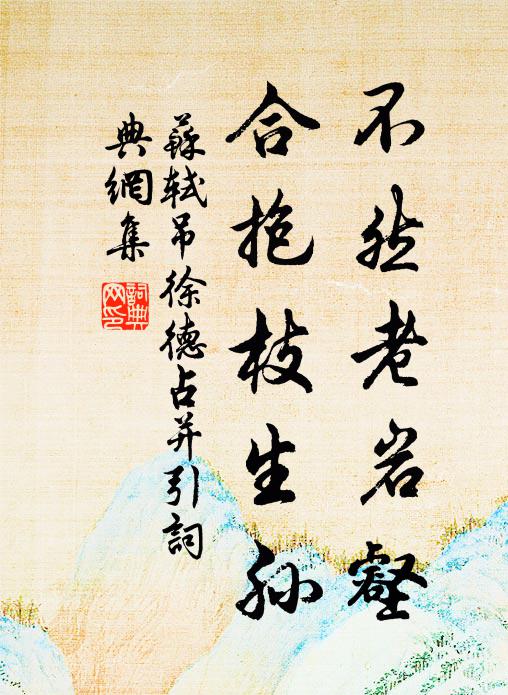 不然老岩壑
合抱枝生孙
苏轼吊徐德占并引词
典網集
詞典網印